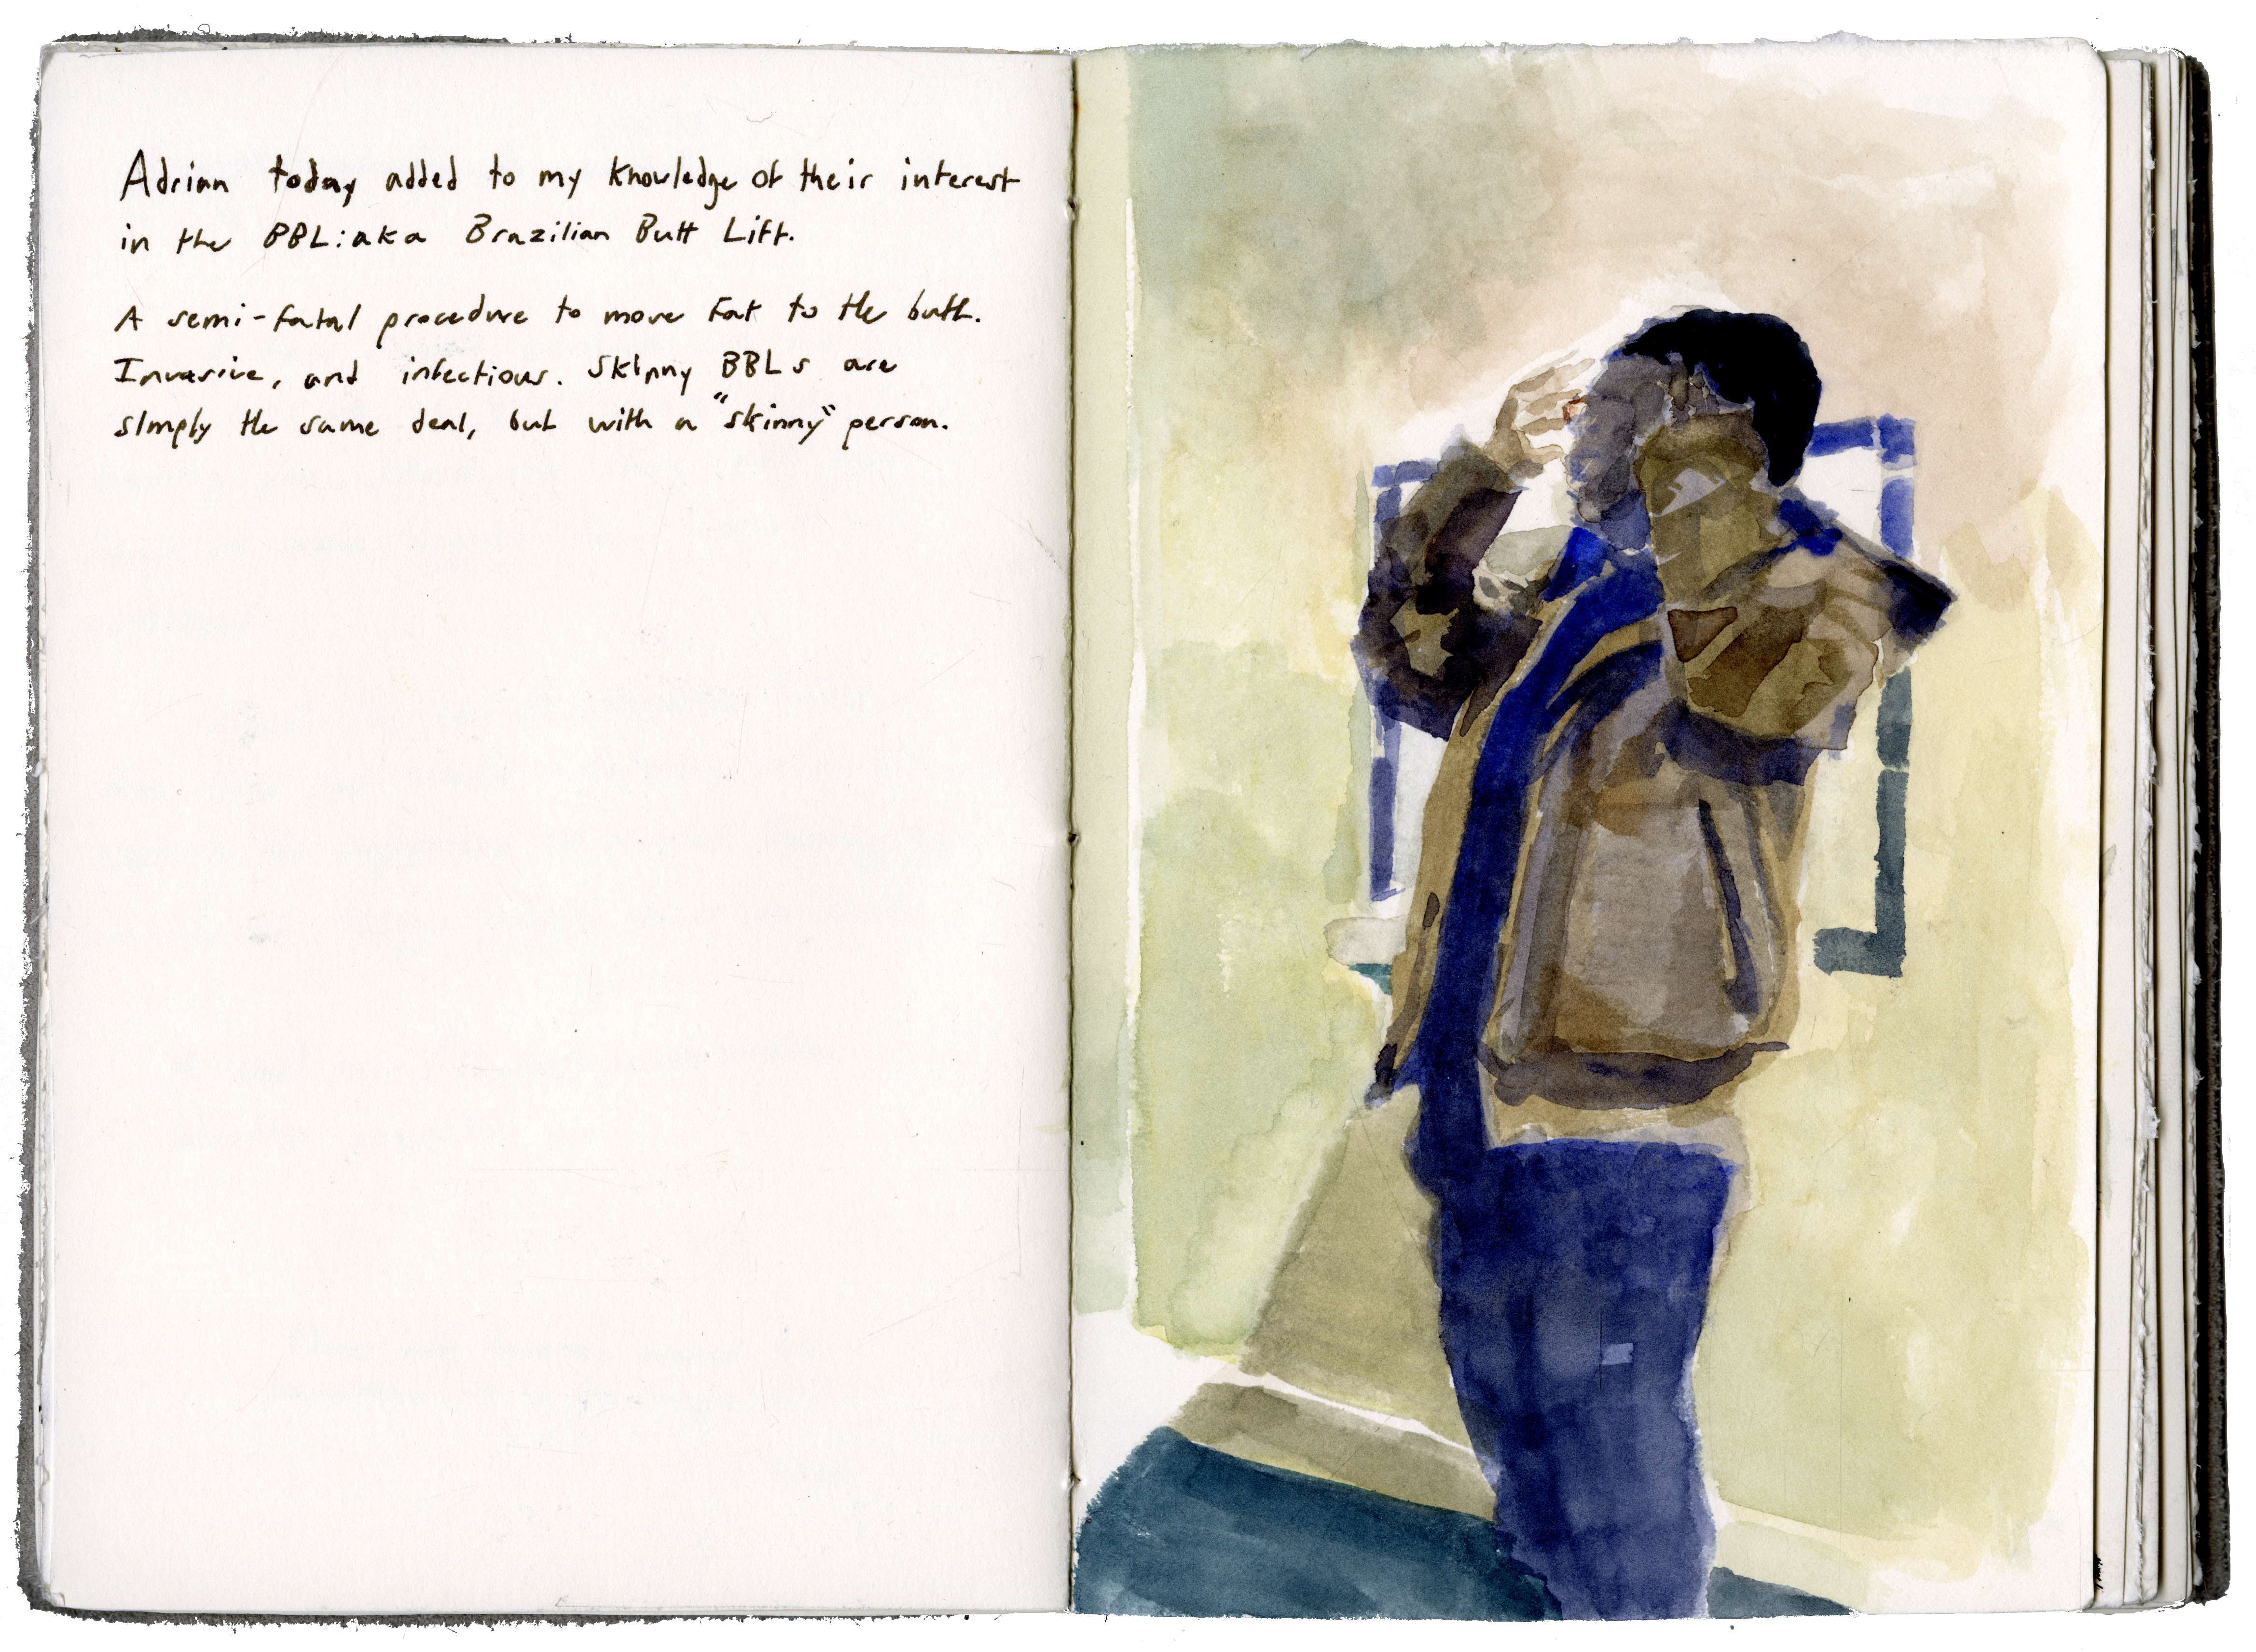 Adrian today added to my knowledge of their interest
in the BBL: aka Brazilian Butt Lift.
A semi-fatal procedure to move fat to the butt.
Invasive, and infectious. Skinny BBLs are
simply the same deal, but with a "skinny" person.